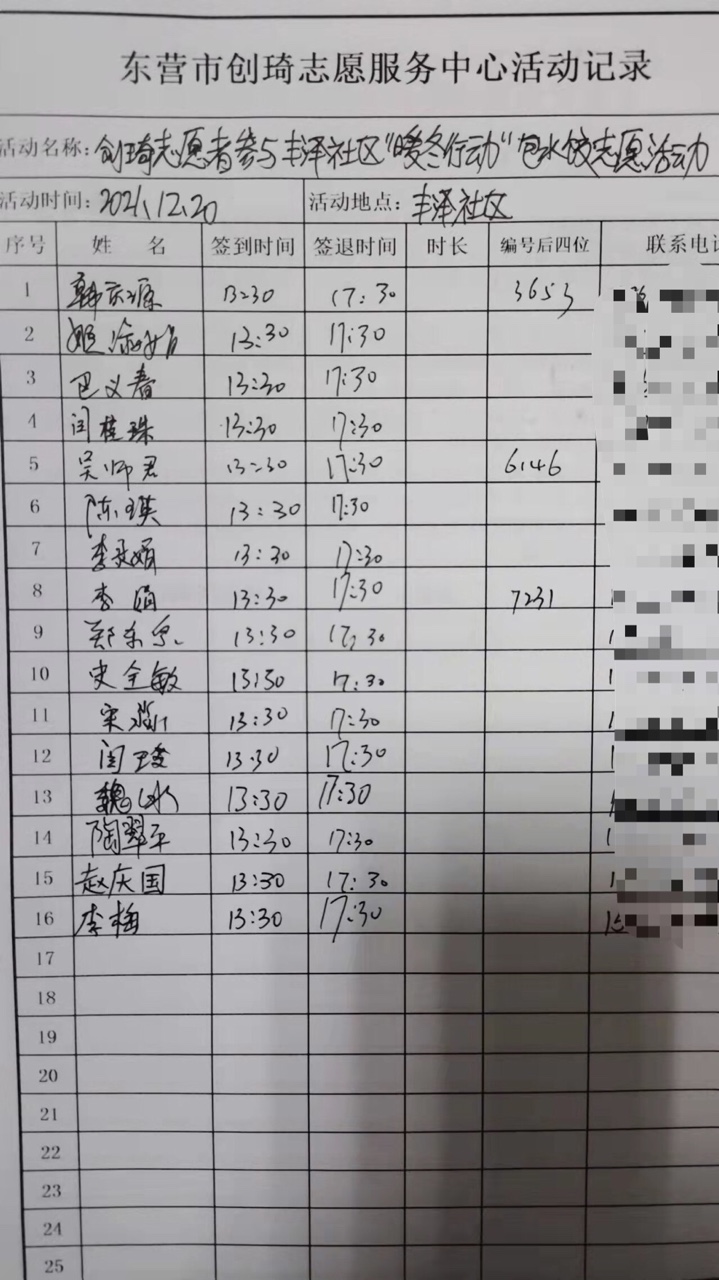 东营市创琦志愿服务中心活动记录
活动名称: 创琦志愿者参与丰泽社区"暖冬行动"包水饺志愿活动
活动时间: 2021.12.20 活动地点: 丰泽社区
序号 姓 名 签到时间 签退时间 时长 编号后四位 联系电
1 13:30 17:30 3653
2 13:30 17:30
3 巴义春 13:30 17:30
4 闫桂珠 13:30 17:30
5 吴师君 13:30 17:30 6146
6 陈琪 13:30 17:30
7 李 娟 13:30 17:30
8 李娟 13:30 17:30 7231
9 郑东 13:30 17:30
10 史全敏 13:30 17:30
11 宋 13:30 17:30
12 闫 13:30 17:30
13 魏 13:30 17:30
14 陶翠平 13:30 17:30
15 赵庆国 13:30 17:30
16 李梅 13:30 17:30
17
18
19
20
21
22
23
24
25